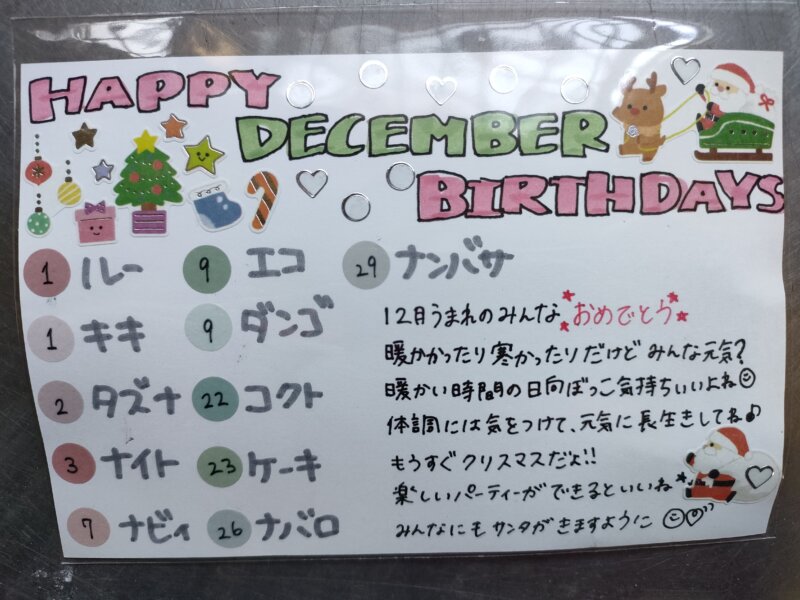 HAPPY
DECEMBER
BIRTHDAYS
1 ルー
1 キキ
2 タズナ
3 ナイト
7 ナビィ
9 エコ
9 ダンゴ
22 コクト
23 ケーキ
26 ナバロ
29 ナンバサ
12月うまれのみんな*おめでとう*
暖かかったり寒かったりだけどみんな元気?
暖かい時間の日向ぼっこ気持ちいいよね☺
体調には気をつけて、元気に長生きしてね♪
もうすぐクリスマスだよ!!
楽しいパーティーができるといいね*
みんなにもサンタがきますように☺♡